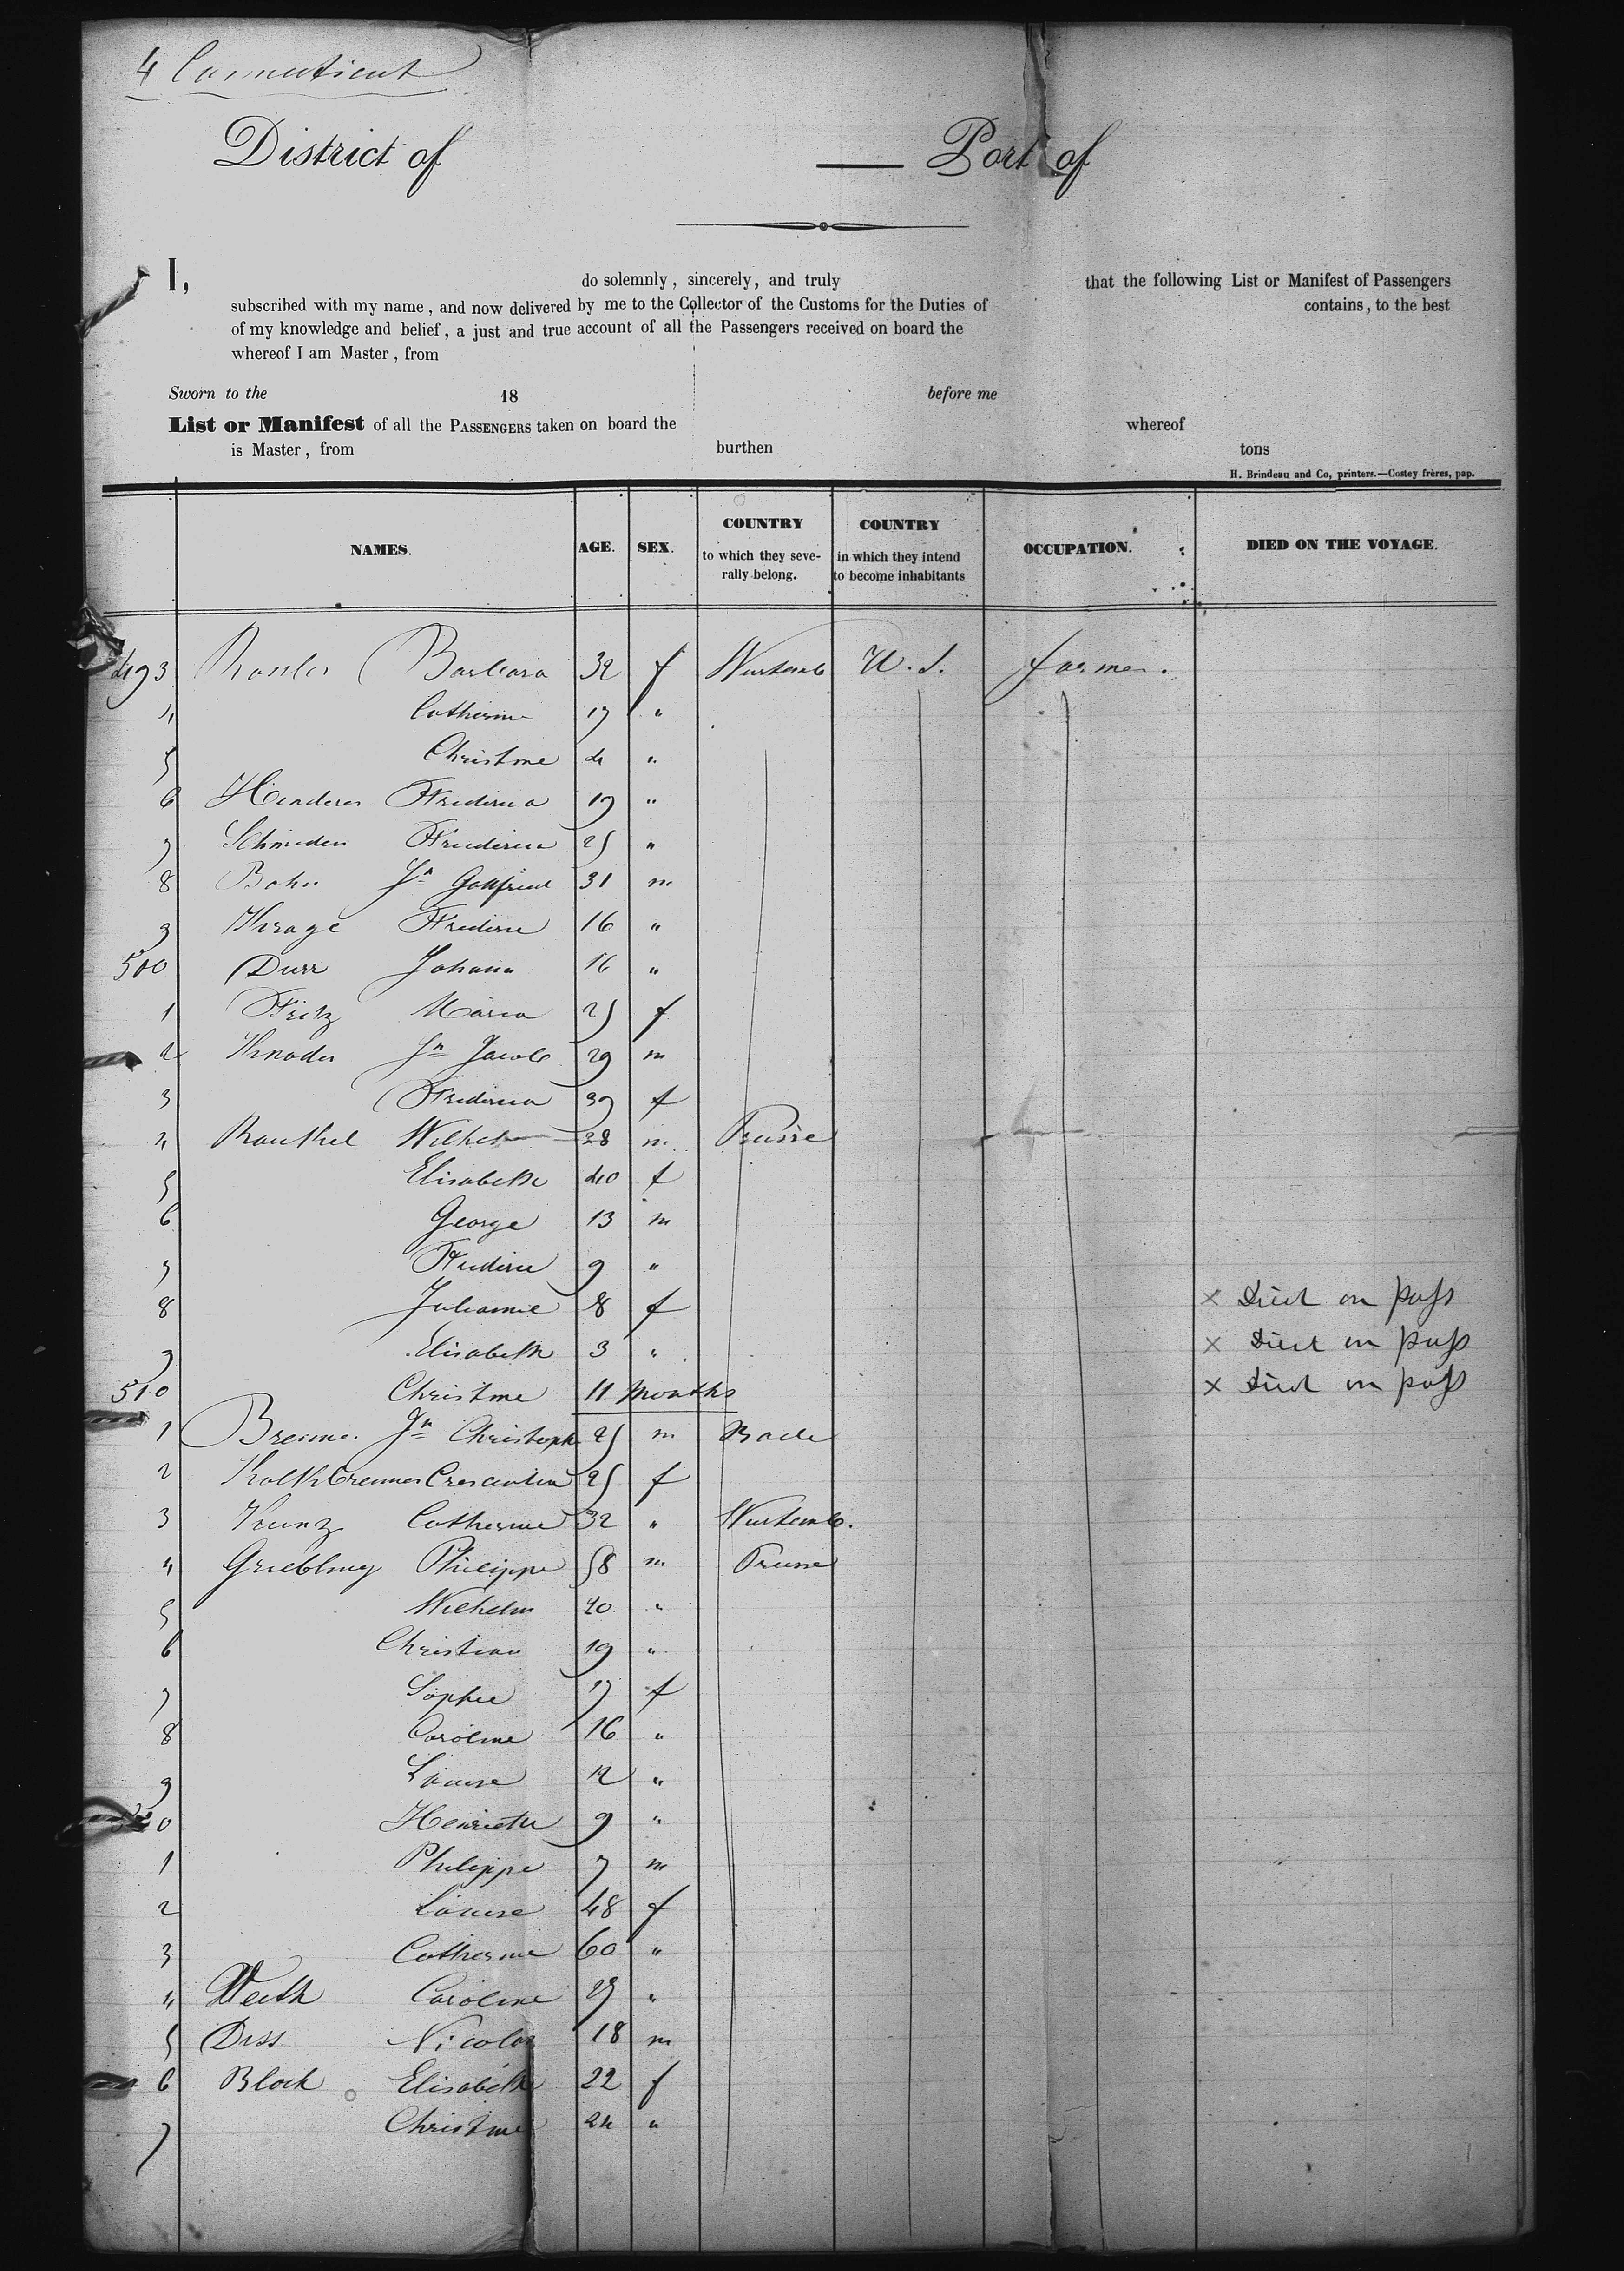 4 Connecticut
District of — Port of
I, do solemnly, sincerely, and truly that the following List or Manifest of Passengers
subscribed with my name, and now delivered by me to the Collector of the Customs for the Duties of contains, to the best
of my knowledge and belief, a just and true account of all the Passengers received on board the
whereof I am Master, from
Sworn to the 18 before me
List or Manifest of all the PASSENGERS taken on board the whereof
is Master, from burthen tons
H. Brindeau and Co, printers.—Costey frères, pap.
NAMES. AGE. SEX. COUNTRY to which they seve-rally belong. COUNTRY in which they intend to become inhabitants OCCUPATION. DIED ON THE VOYAGE.
493 Barbara 32 f Wurtemb U. S. farmer.
4 Catherine 17 "
5 Christine 4 "
6 Frederica 19 "
7 25 "
8 Bohn Jn Gottfried 31 m
9 16 "
500 Durr Johann 16 "
1 Fritz Maria 25 f
2 Knoder Jn Jacob 29 m
3 Frederica 39 f
4 Rauthel Wilhelm 28 m Prusse
5 Elisabeth 40 f
6 George 13 m
7 9 "
8 Julianne 8 f x Died on pass
9 Elisabeth 3 " x Died on pass
510 Christine 11 months x Died on pass
1 Jn Christoph 25 m Bade
2 25 f
3 Kunz Catherine 32 " Wurtemb.
4 Griebling Philippe 58 m Prusse
5 Wilhelm 20 "
6 Christian 19 "
7 Sophie 17 f
8 Caroline 16 "
9 Louise 12 "
520 Henriette 9 "
1 Philippe 7 m
2 Louise 48 f
3 Catherine 60 "
4 Caroline "
5 Diss Nicolas 18 m
6 Block Elisabeth 22 f
7 Christine 24 "